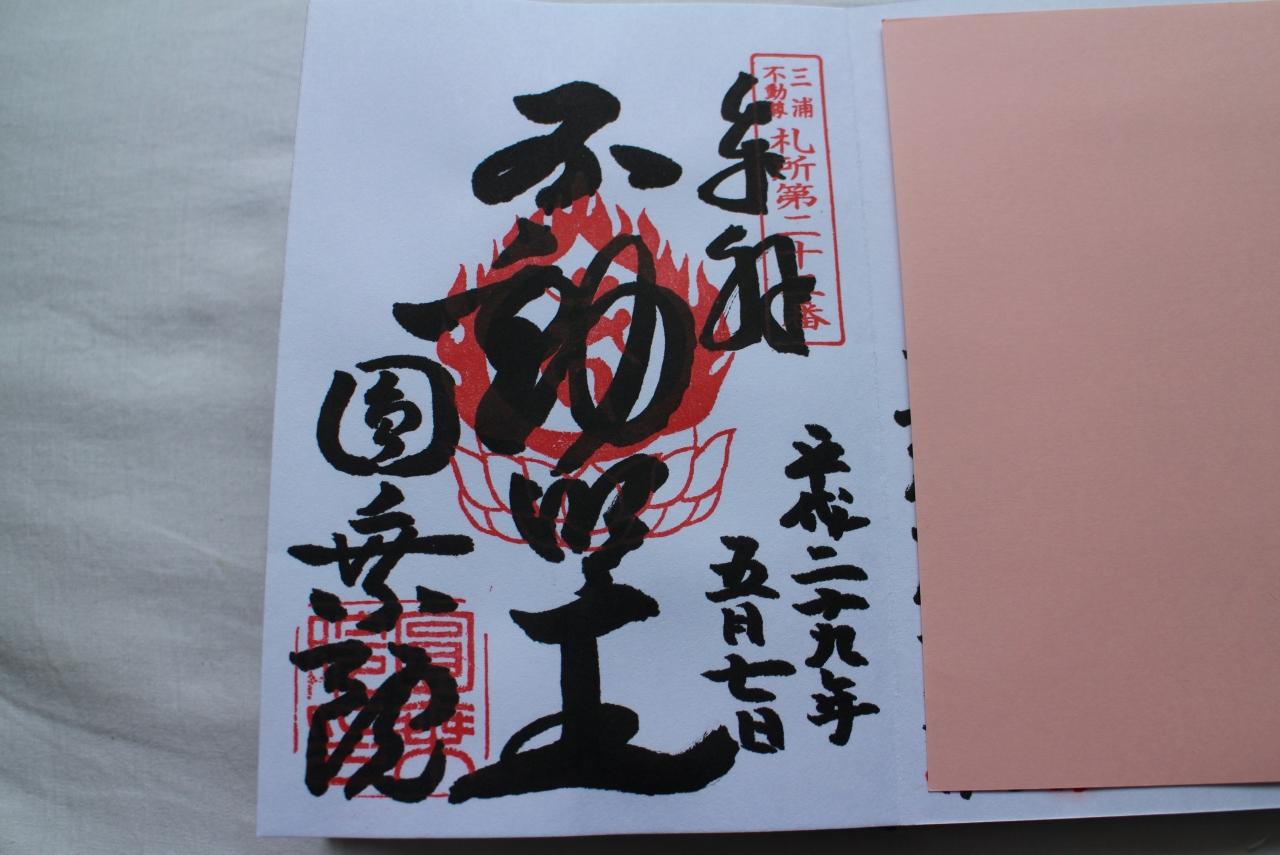 三浦
不動尊
札所第二十番
奉拝
平成二十九年
五月七日
不動明王
圓乗院